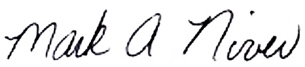 Mark A Niver